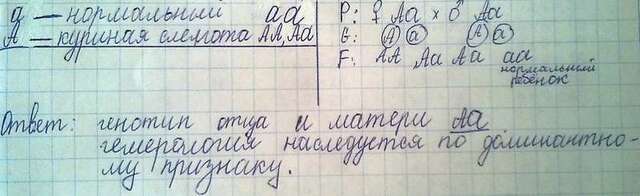 а — нормальный аа
А — куриная слепота АА, Аа
P: ♀ Аа × ♂ Аа
G: А а А а
F: АА, Аа Аа аа
нормальный
ребёнок
Ответ: генотип отца и матери Аа
гемералогия наследуется по доминантно-
му признаку.